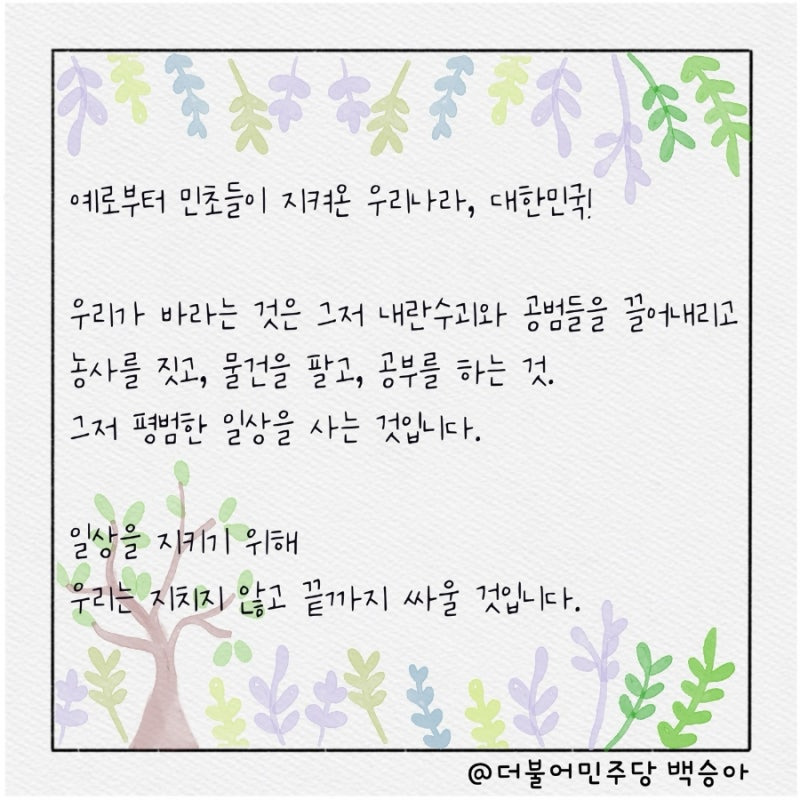 예로부터 민초들이 지켜온 우리나라, 대한민국!
우리가 바라는 것은 그저 내란수괴와 공범들을 끌어내리고
농사를 짓고, 물건을 팔고, 공부를 하는 것.
그저 평범한 일상을 사는 것입니다.
일상을 지키기 위해
우리는 지치지 않고 끝까지 싸울 것입니다.
@더불어민주당 백승아